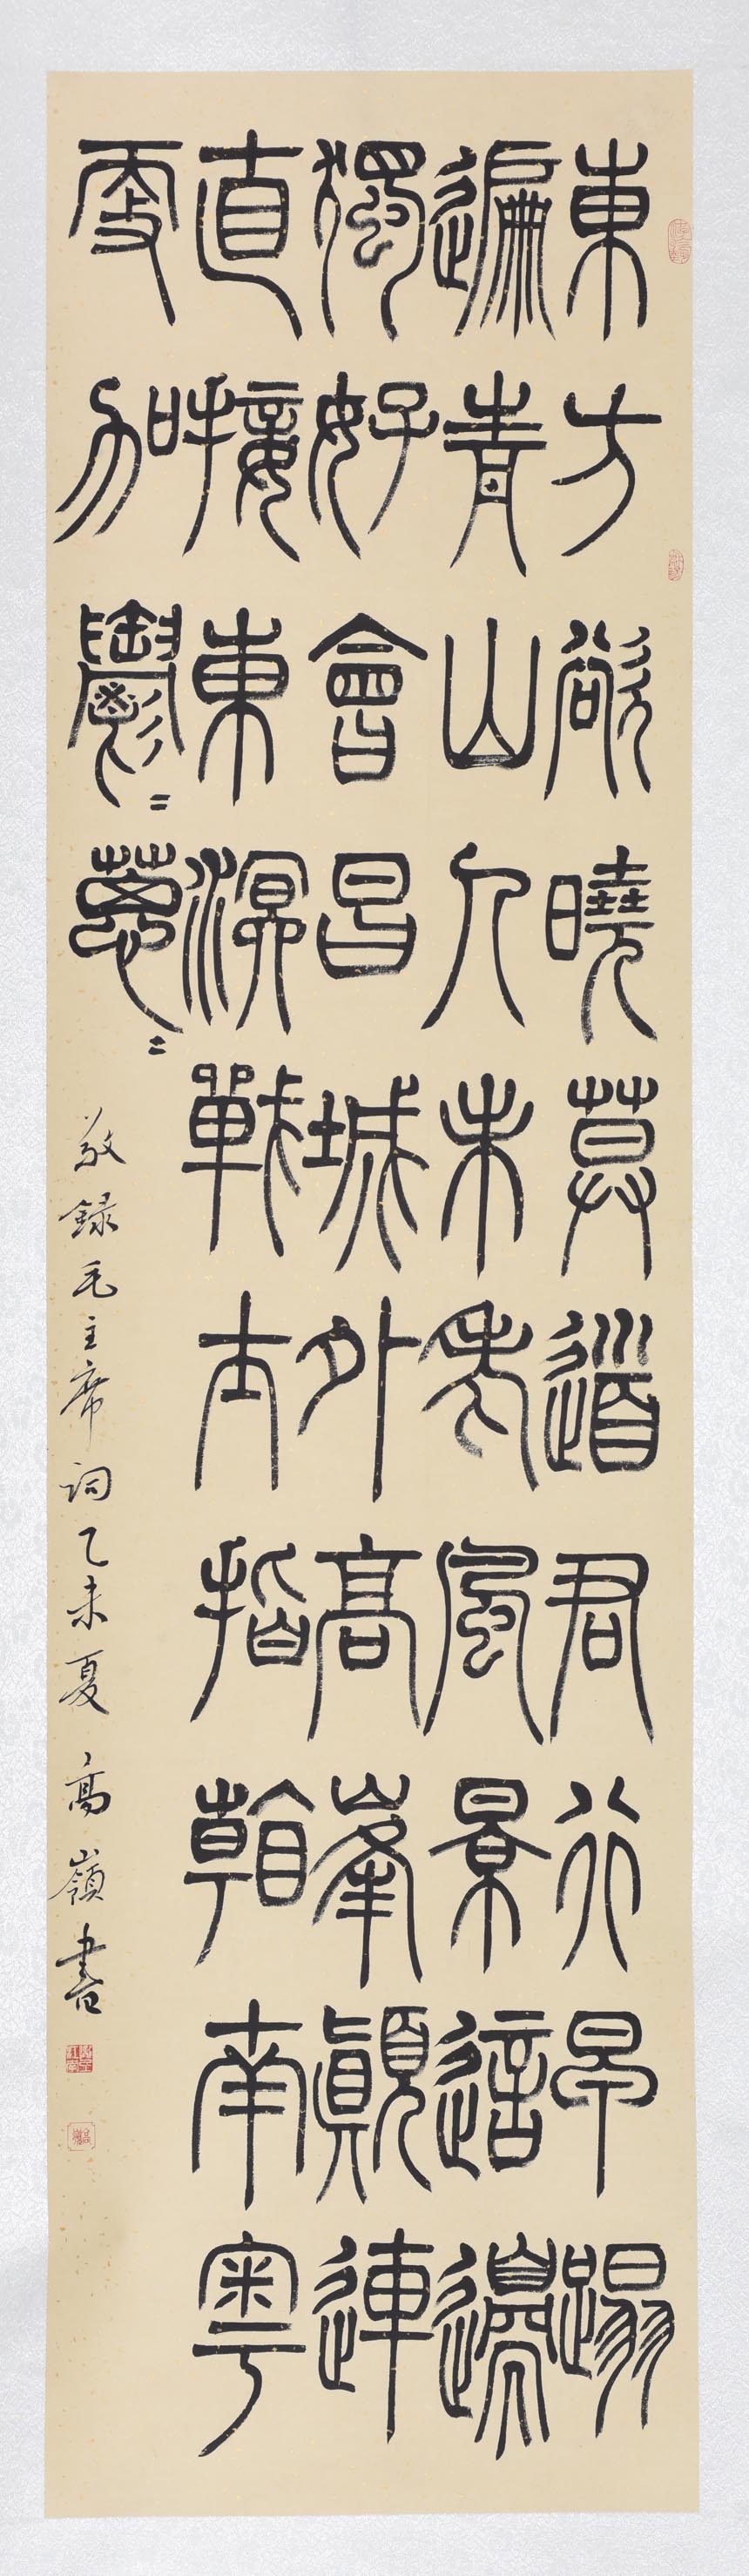 東方欲曉莫道君行早蹋
遍青山人未老風景這邊
獨好會昌城外高峯顛連
直接東溟戰士指看南粵
更加鬱〻蔥〻
敬録毛主席詞乙未夏高嶺書